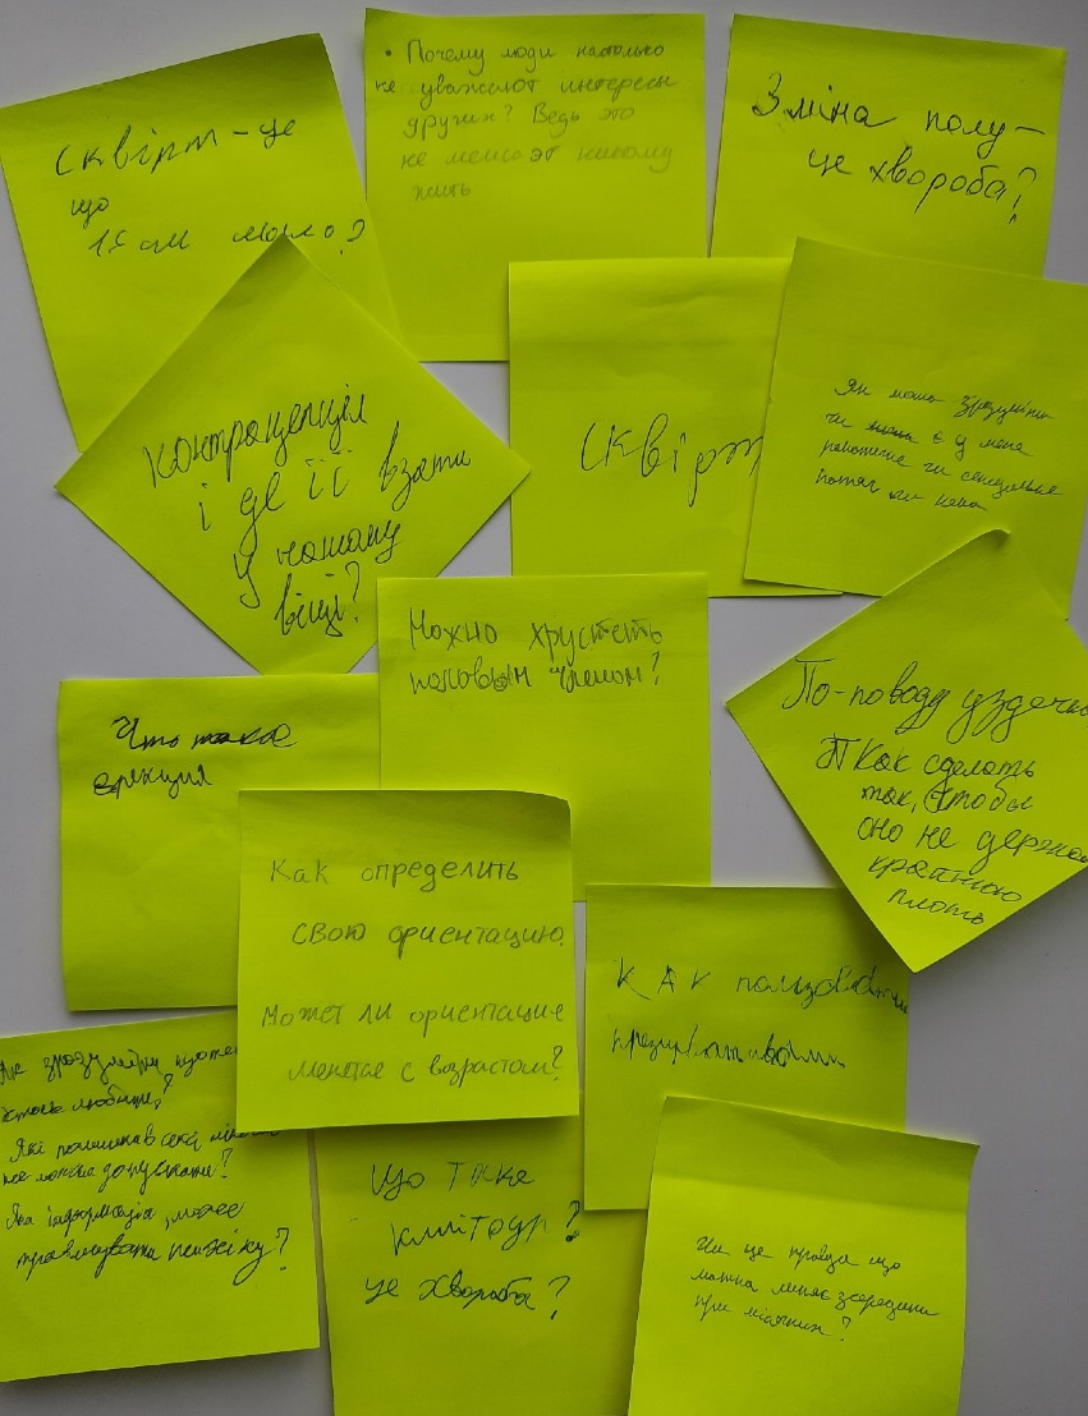 Сквірт – це
що
15 см мало?
• Почему люди настолько
не уважают интересы
других? Ведь это
не мешает никому
жить
Зміна полу –
це хвороба?
Контрацепція
і де її взяти
у нашому
віці?
Сквірт
Як мона зрозуміти
чи є у мене
чи сексуальне
потяг чи нема
Можно хрустеть
половым членом?
По-поводу уздечки
Как сделать
так, чтобы
оно не держал
крайнюю
плоть
Что такое
эрекция
Как определить
свою ориентацию.
Может ли ориентацие
менятся с возрастом?
КАК
презирвативами
Як зрозуміти що тебе
хтось любить?
Які помилки в сексі
не можна допускати?
Яка інформація може
травмувати психіку?
Що таке
клітоур?
це хвороба?
Чи це правда що
можна зсередини
при місячних?